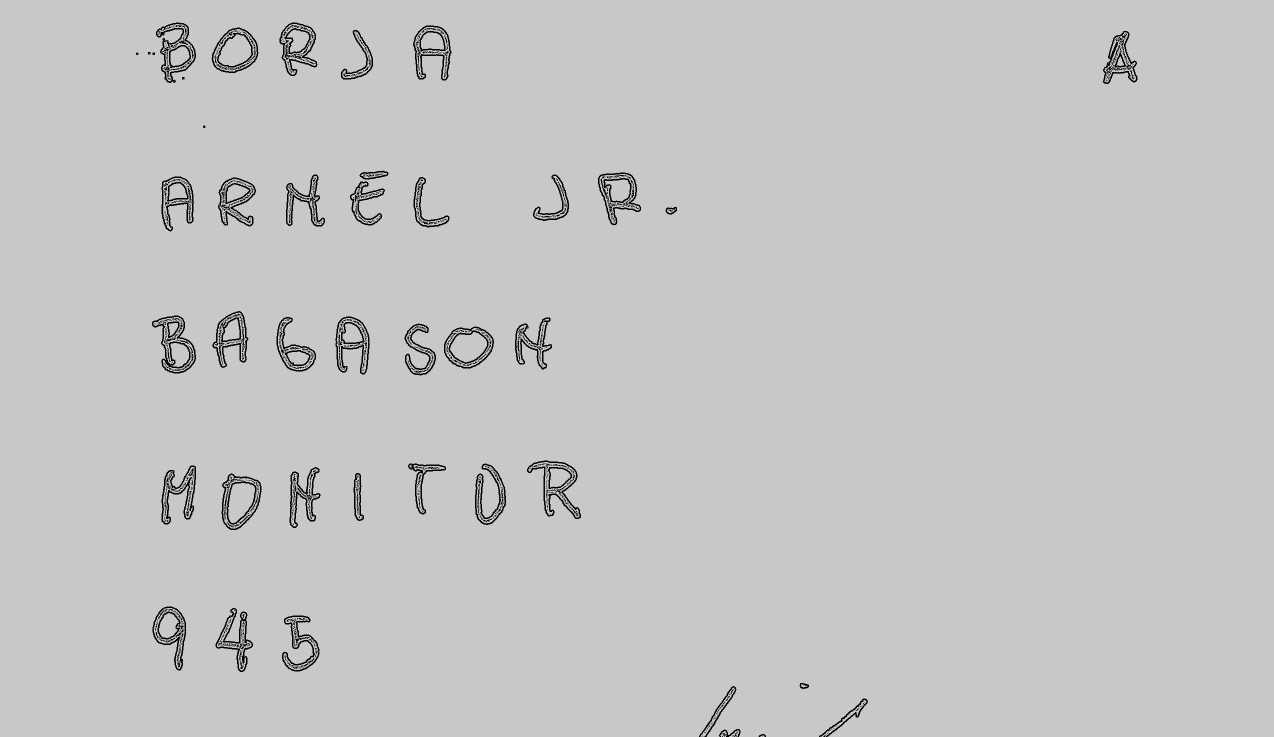 BORJA A
ARNEL JR.
BAGASON
MONITOR
945